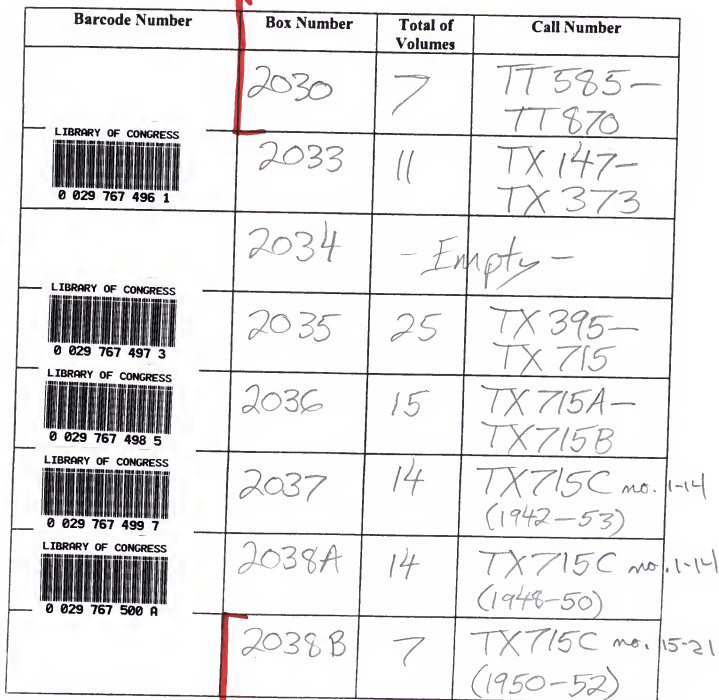 Barcode Number Box Number Total of Volumes Call Number
2030 7 TT 585 –
TT 870
LIBRARY OF CONGRESS
0 029 767 496 1
2033 11 TX 147 –
TX 373
2034 - Empty -
LIBRARY OF CONGRESS
0 029 767 497 3
2035 25 TX 395 –
TX 715
LIBRARY OF CONGRESS
0 029 767 498 5
2036 15 TX 715A –
TX715B
LIBRARY OF CONGRESS
0 029 767 499 7
2037 14 TX715C no. 1-14
(1942 – 53)
LIBRARY OF CONGRESS
0 029 767 500 A
2038A 14 TX715C no. 1-14
(1948-50)
2038B 7 TX715C no. 15-21
(1950-52)